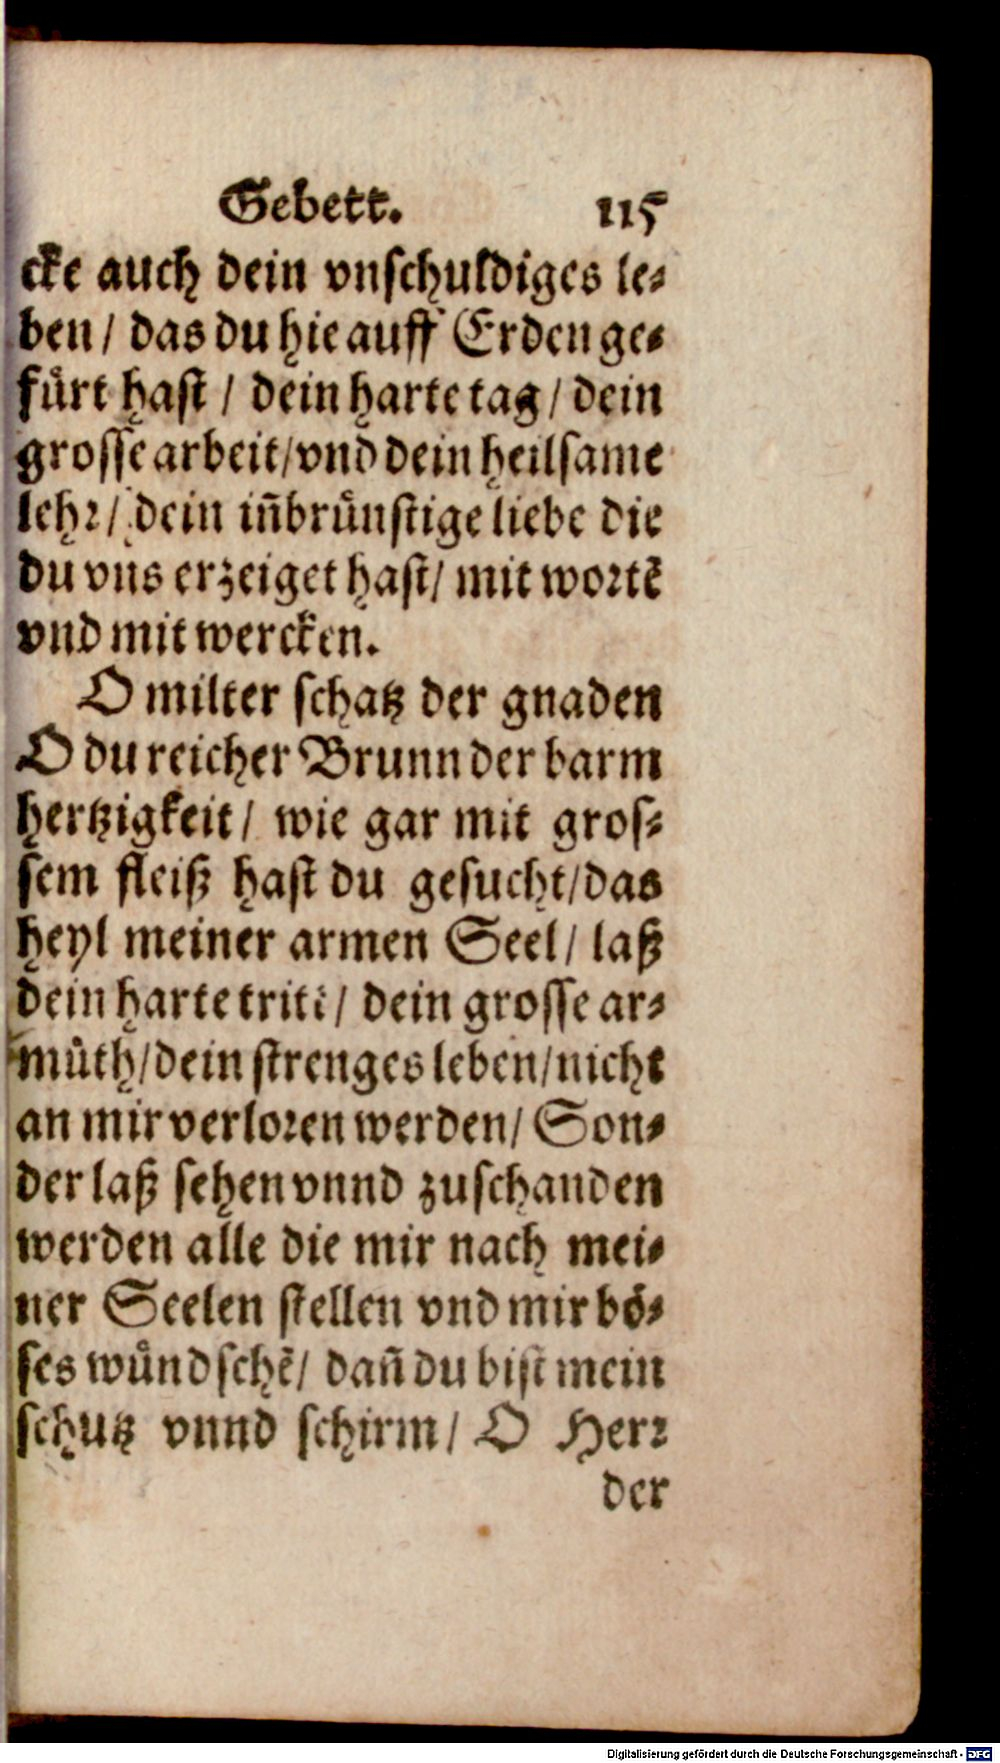 Gebett. 115
cke auch dein vnschuldiges le-
ben / das du hie auff Erden ge-
fürt hast / dein harte tag / dein
grosse arbeit / vnd dein heilsame
lehr / dein iñbrünstige liebe die
du vns erzeiget hast / mit wortẽ
vnd mit wercken.
O milter schatz der gnaden
O du reicher Brunn der barm
hertzigkeit / wie gar mit gros-
sem fleiß hast du gesucht / das
heyl meiner armen Seel / laß
dein harte tritẽ / dein grosse ar-
müth / dein strenges leben / nicht
an mir verloren werden / Son-
der laß sehen vnnd zuschanden
werden alle die mir nach mei-
ner Seelen stellen vnd mir bö-
ses wündschẽ / dañ du bist mein
schutz vnnd schirm / O Herr
der
Digitalisierung gefördert durch die Deutsche Forschungsgemeinschaft - DFG